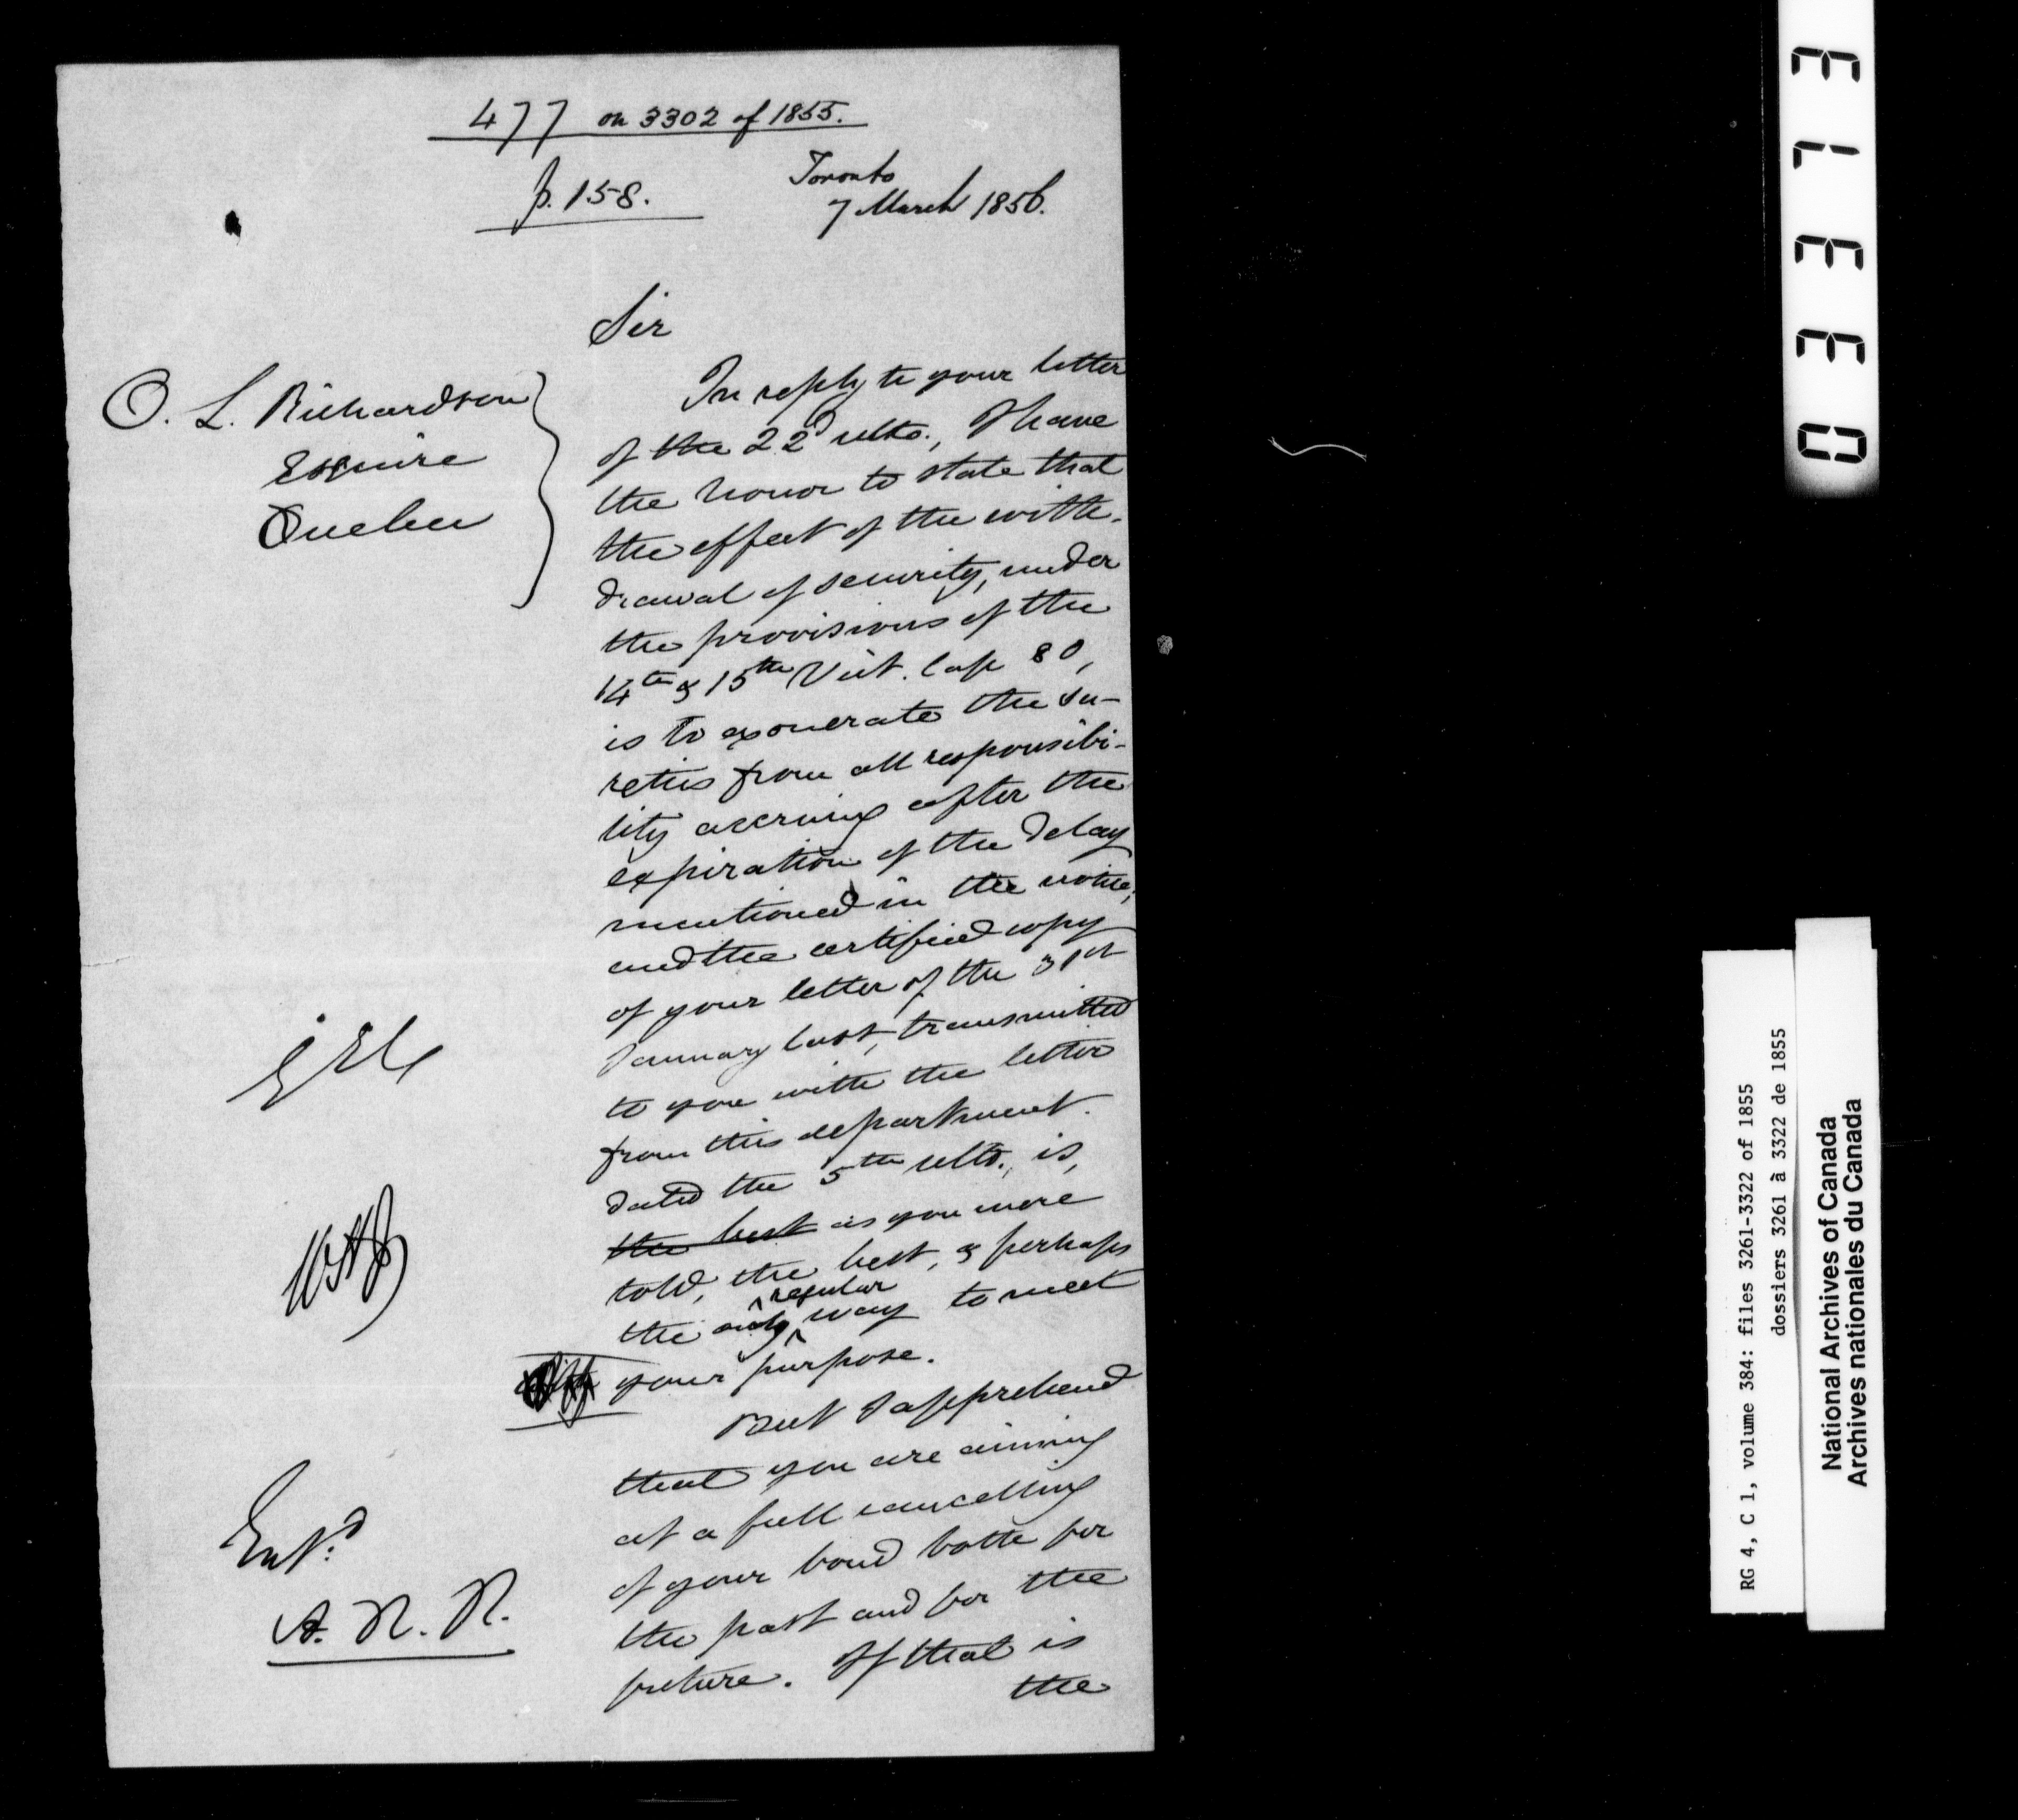 477 on 3302 of 1855.
p. 158.
Toronto
7 March 1856.
Sir
O. L. Richardson
Esquire
Quebec
In reply to your letter
of the 22d ulto., I have
the honor to state that
the effect of the with-
drawal of security, under
the provisions of the
14th & 15th Vict. Cap 80,
is to exonerate the su-
reties from all responsibi-
lity accruing after the
expiration of the delay
mentioned in the notice;
and the certified copy
of your letter of the 31st
January last, transmitted
to you with the letter
from this department
dated the 5th ulto., is,
the best as you were
told, the best, & perhaps
the only regular way to meet
your purpose.
But I apprehend
that you are aiming
at a full cancelling
of your bond both for
the past and for the
future. If that is
the
Entd
A. R. R.
03373
RG 4, C 1, volume 384: files 3261-3322 of 1855
dossiers 3261 à 3322 de 1855
National Archives of Canada
Archives nationales du Canada